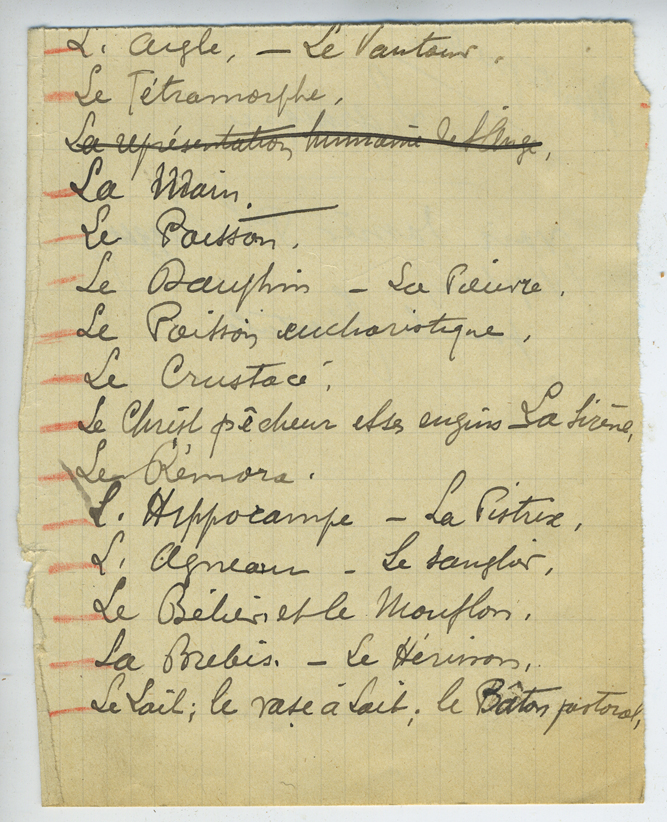 L'Aigle, – Le Vautour.
Le Tétramorphe.
La représentation humaine de l'Ange,
La Main.
Le Poisson.
Le Dauphin – La Pieuvre.
Le Poisson eucharistique,
Le Crustacé.
Le Christ pêcheur et ses engins – La Sirène,
Le Rémora.
L'Hippocampe – La Pistrix,
L'Agneau – Le sanglier,
Le Bélier et le Mouflon.
La Brebis. – Le Hérisson,
Le Lait; le vase à Lait; le Bâton pastoral,